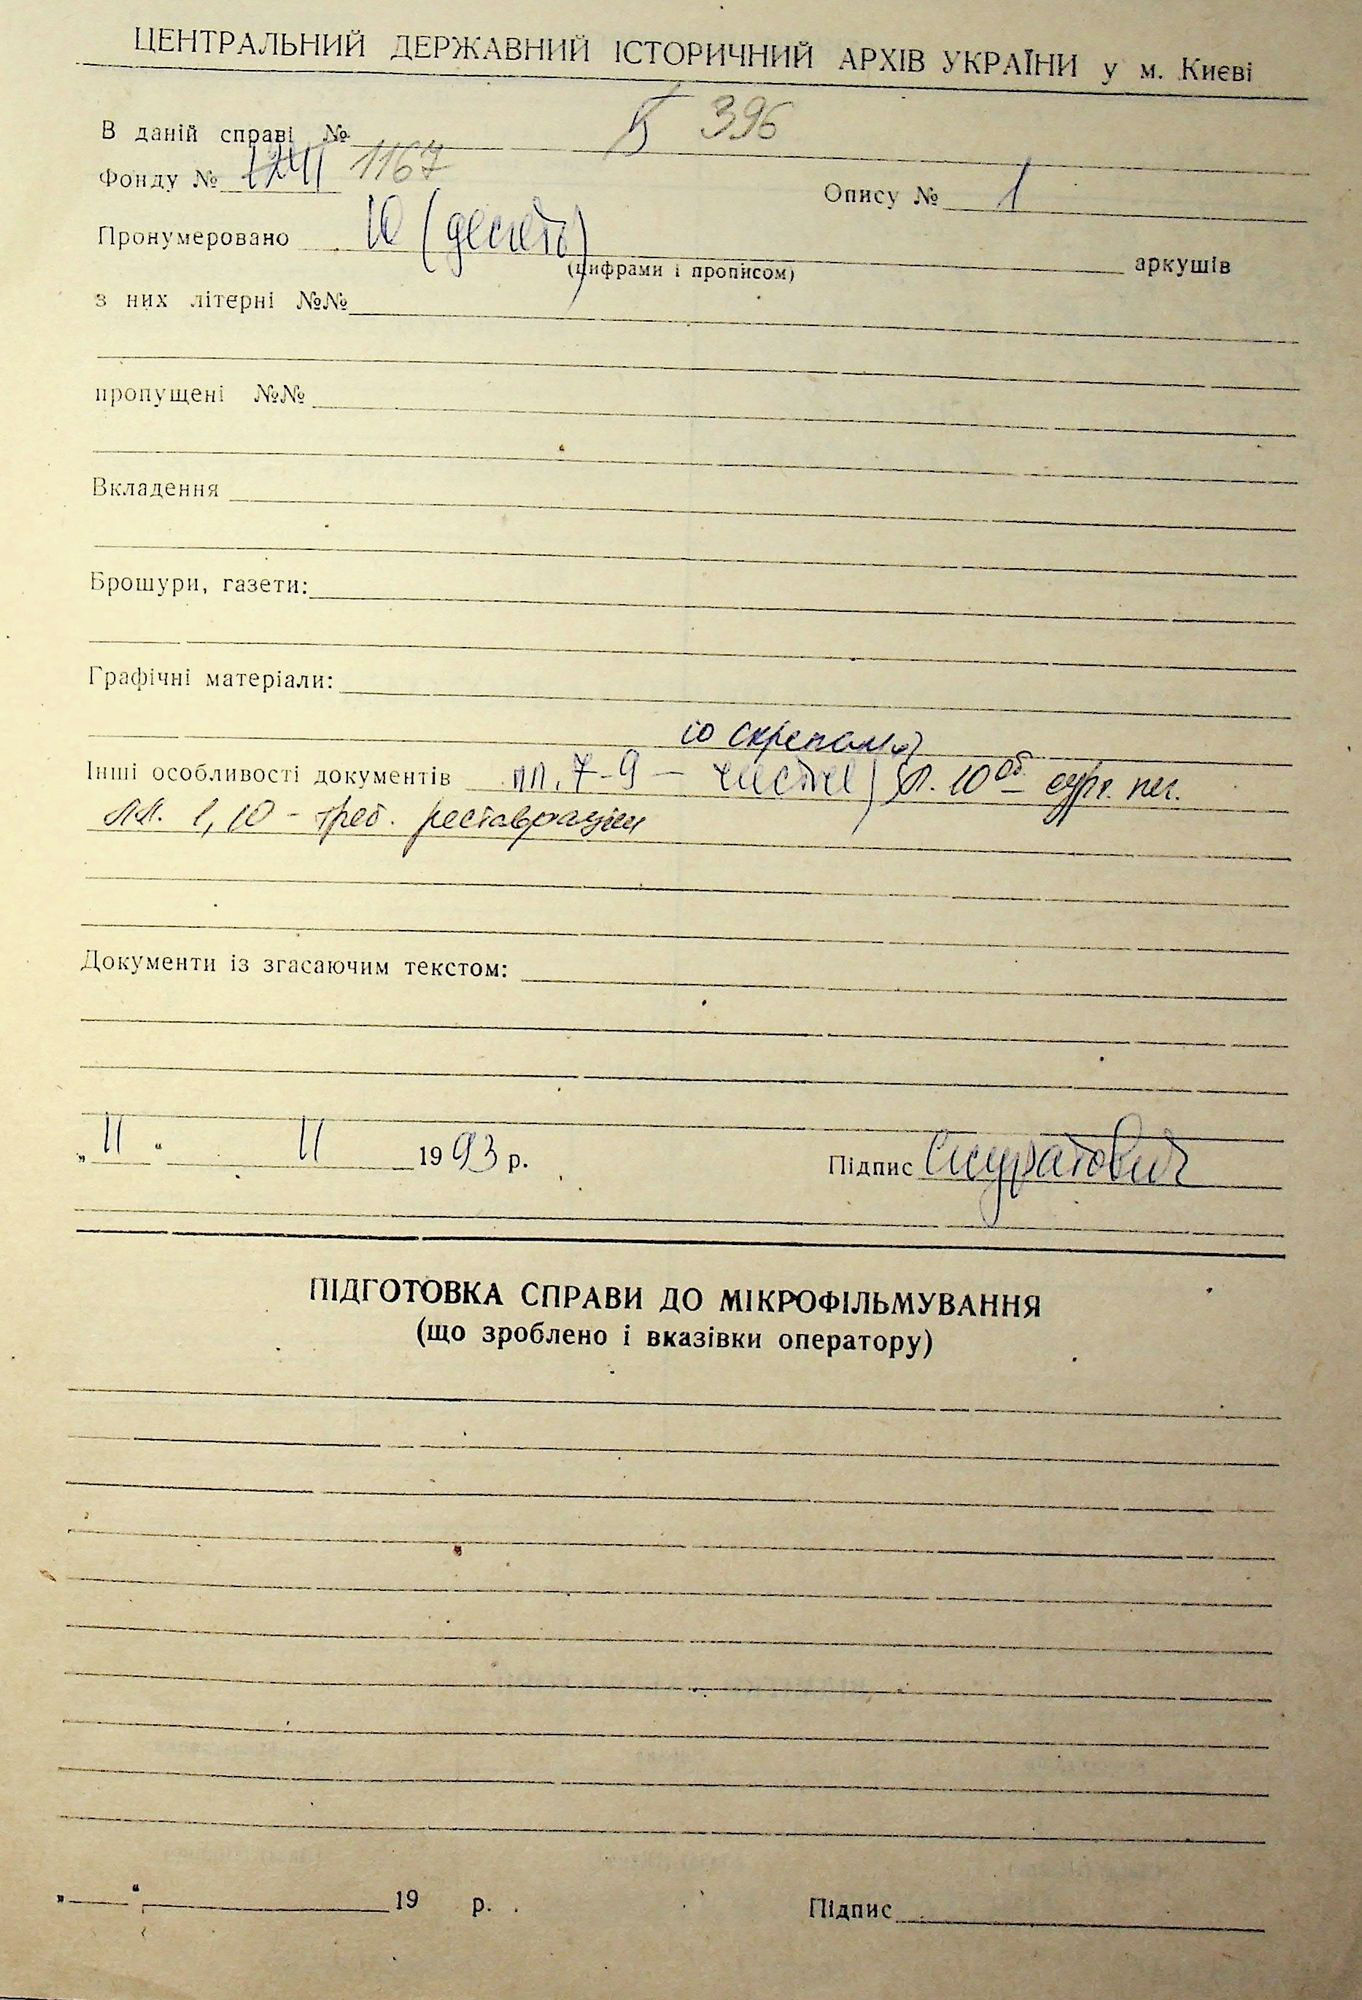 ЦЕНТРАЛЬНИЙ ДЕРЖАВНИЙ ІСТОРИЧНИЙ АРХІВ УКРАЇНИ у м. Києві
В даній справі № 5 396
Фонду № 1167
Опису № 1
Пронумеровано 10 (десять) аркушів
(цифрами і прописом)
з них літерні №№
пропущені №№
Вкладення
Брошури, газети:
Графічні матеріали:
со скрепами
Інші особливості документів лл. 7-9 — чисті, л. 10 об сург. печ.
лл. 1, 10 - треб. реставрации
Документи із згасаючим текстом:
„ 11 “ 11 1993 р.
Підпис Скуратович
ПІДГОТОВКА СПРАВИ ДО МІКРОФІЛЬМУВАННЯ
(що зроблено і вказівки оператору)
„ “ 19 р.
Підпис